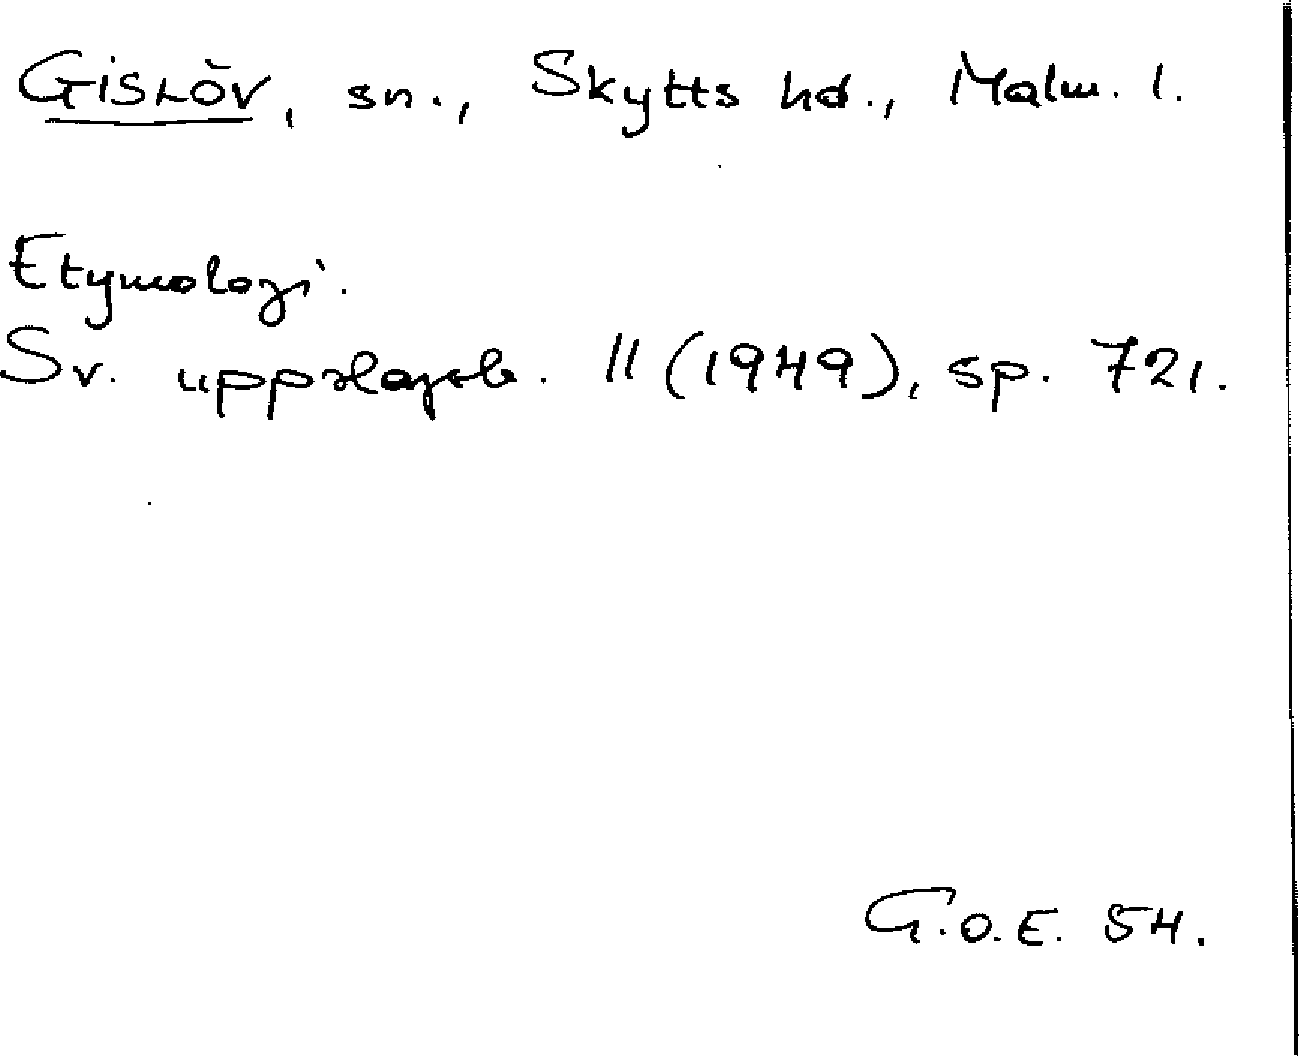 Gislöv, sn., Skytts hd., Malm. l.
Etymologi.
Sv. uppslagsb. 11 (1949), sp. 721.
G.O.E. 54.